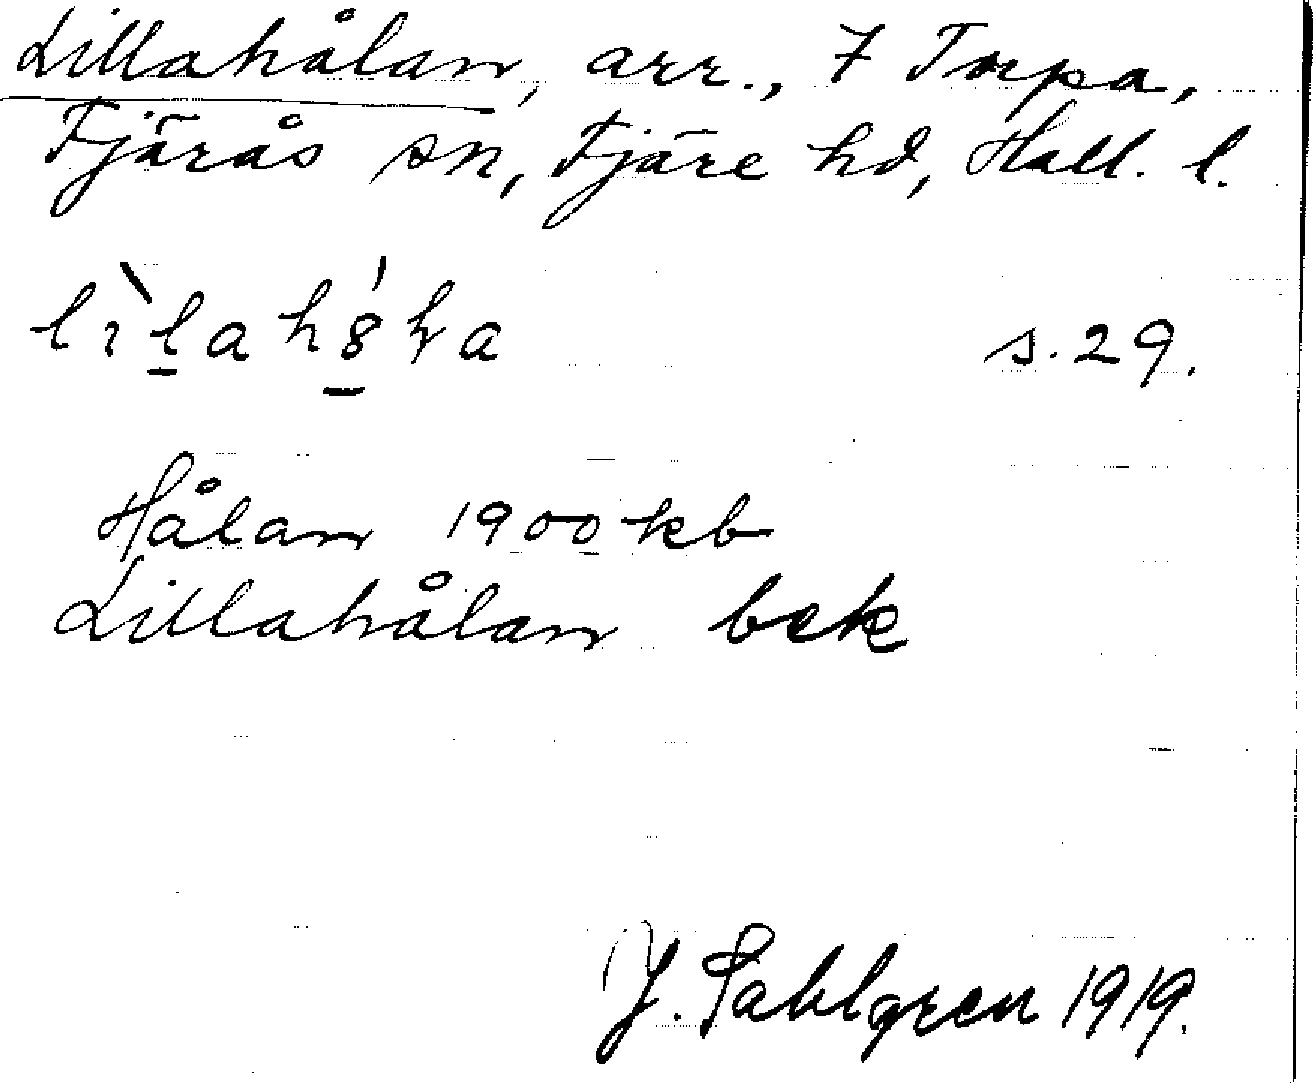 Lillahålan, arr., 7 Torpa,
Fjärås sn, Fjäre hd, Hall. l.
s. 29.
Hålan 1900 kb
Lillahålan bek
J. Sahlgren 1919.